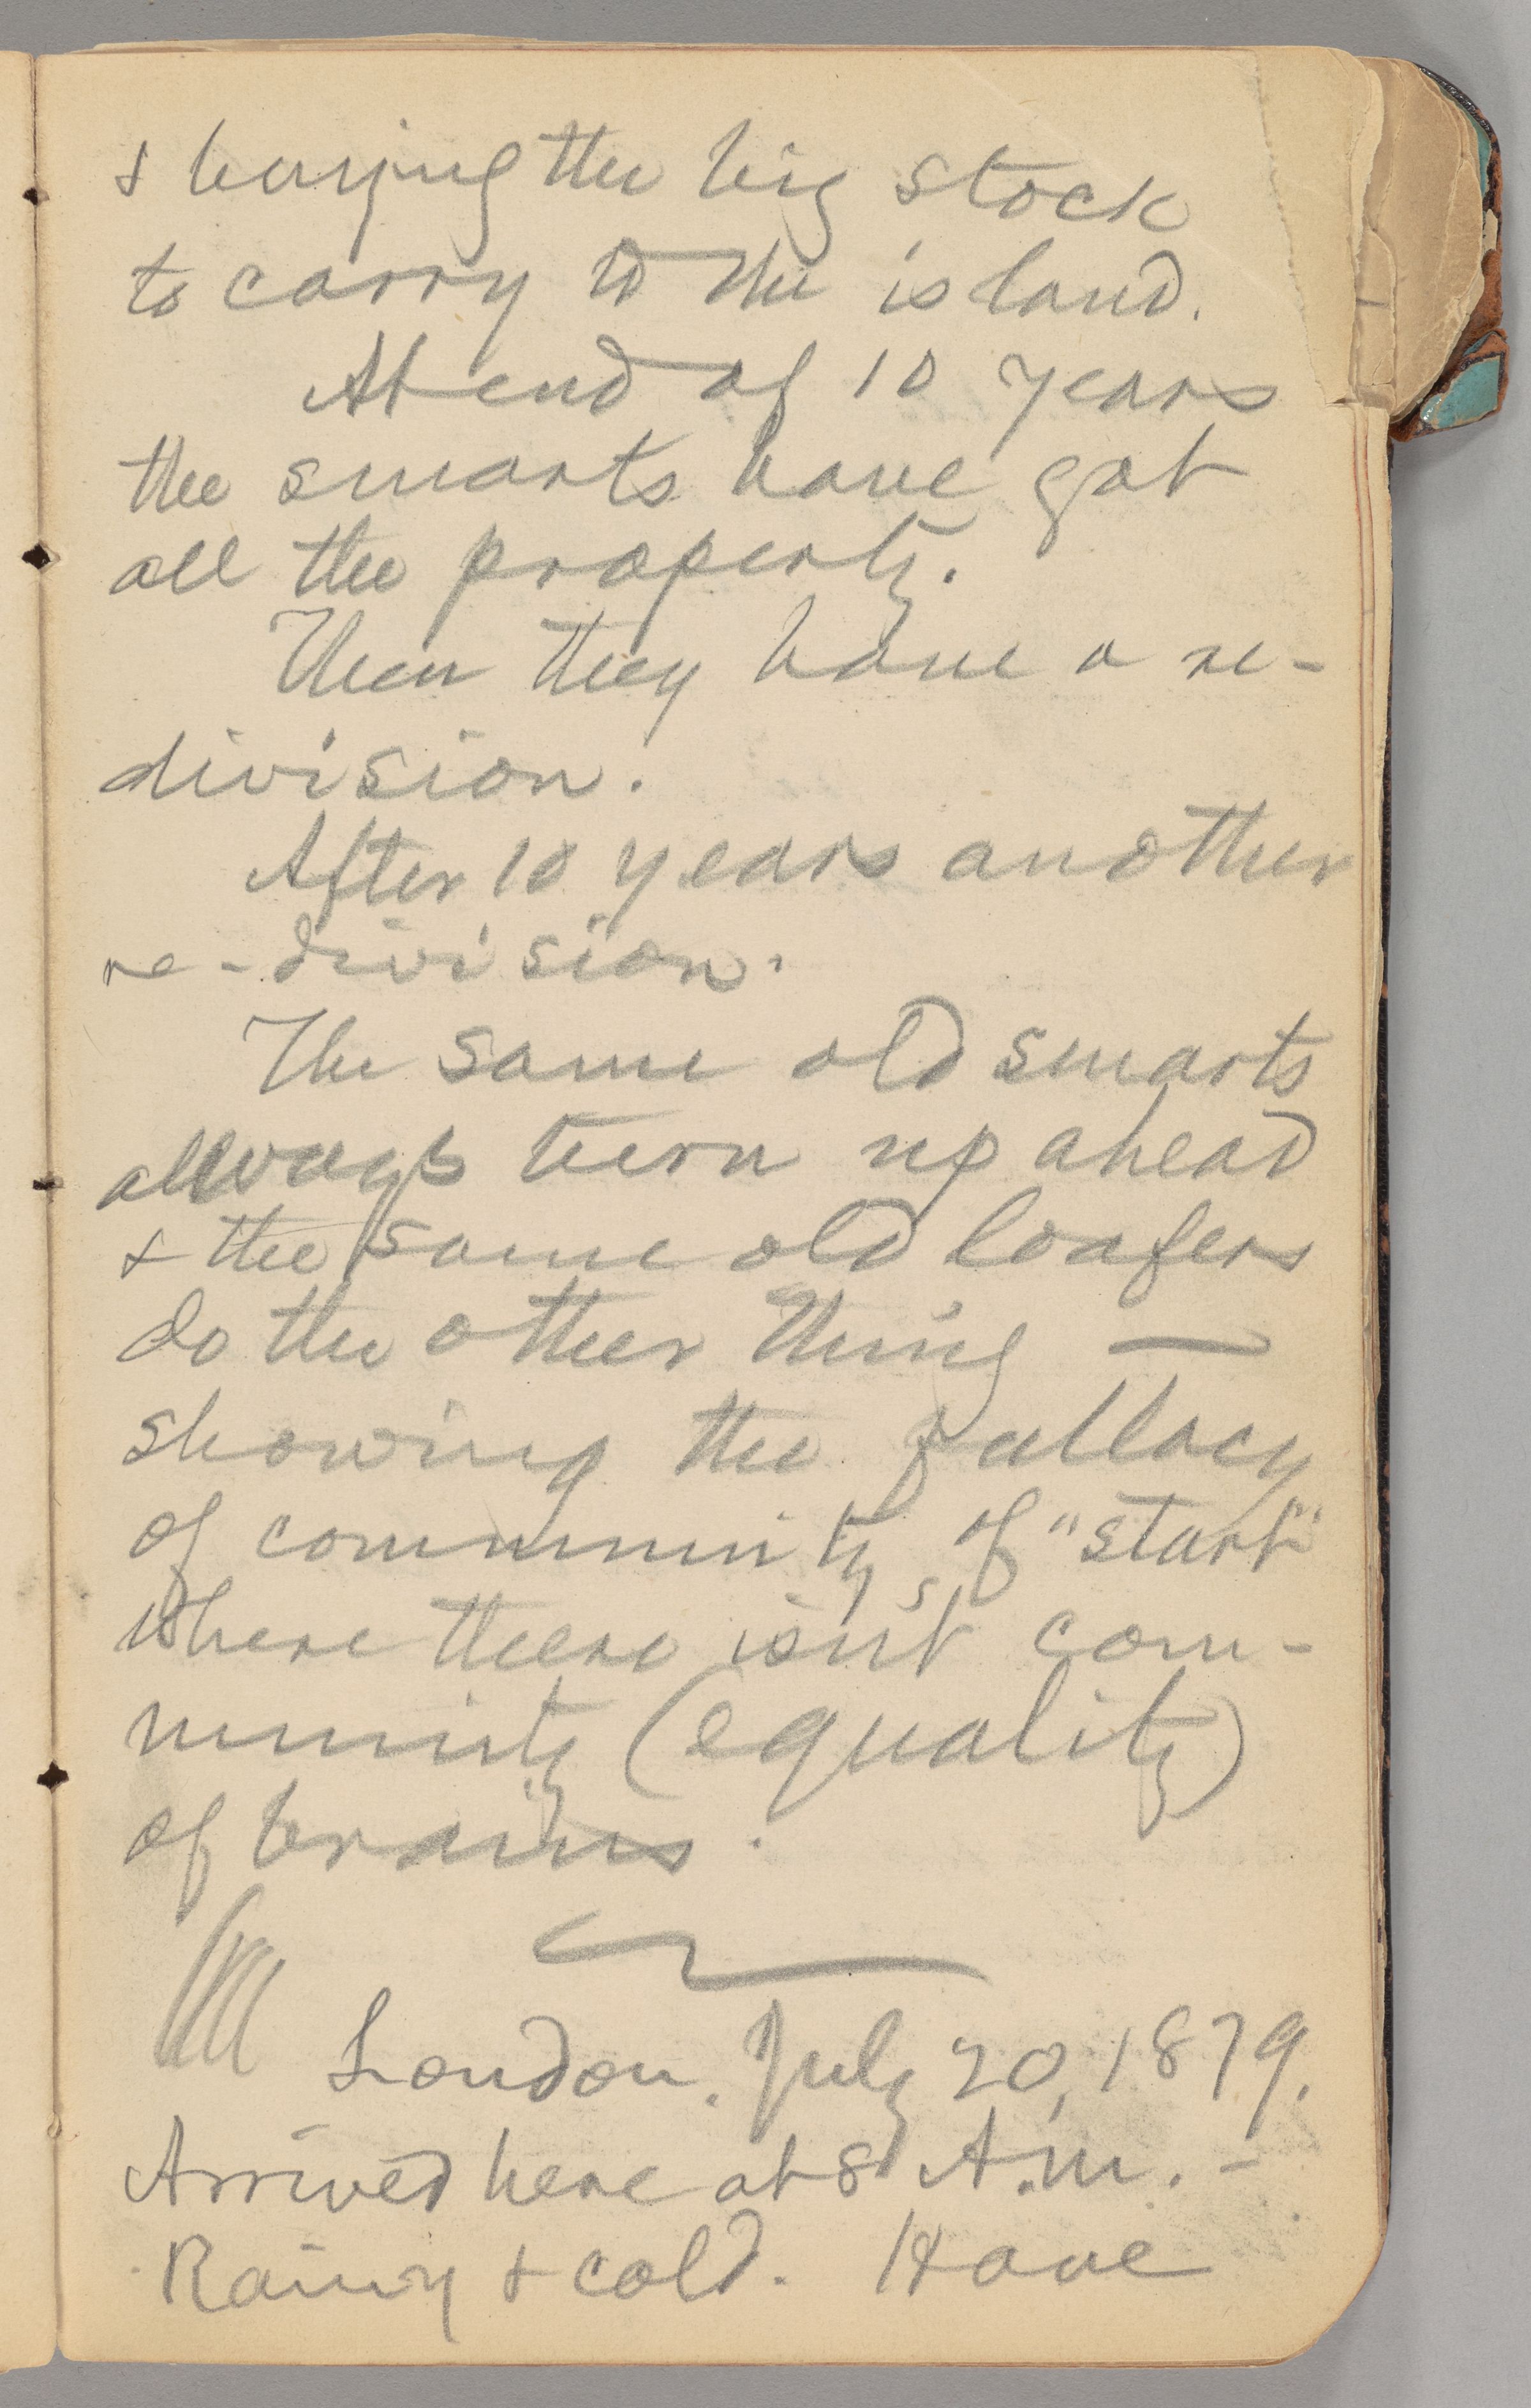 & buying the big stock
to carry to the island.
At end of 10 years
the smarts have got
all the property.
Then they have a re-
division.
After 10 years another
re-division.
The same old smarts
always turn up ahead
& the same old loafers
do the other thing —
showing the fallacy
of community of "start"
where there isn't com-
munity (equality)
of brains.
London. July 20, 1879.
Arrived here at 8 A.m. -
Rainy & cold. Have